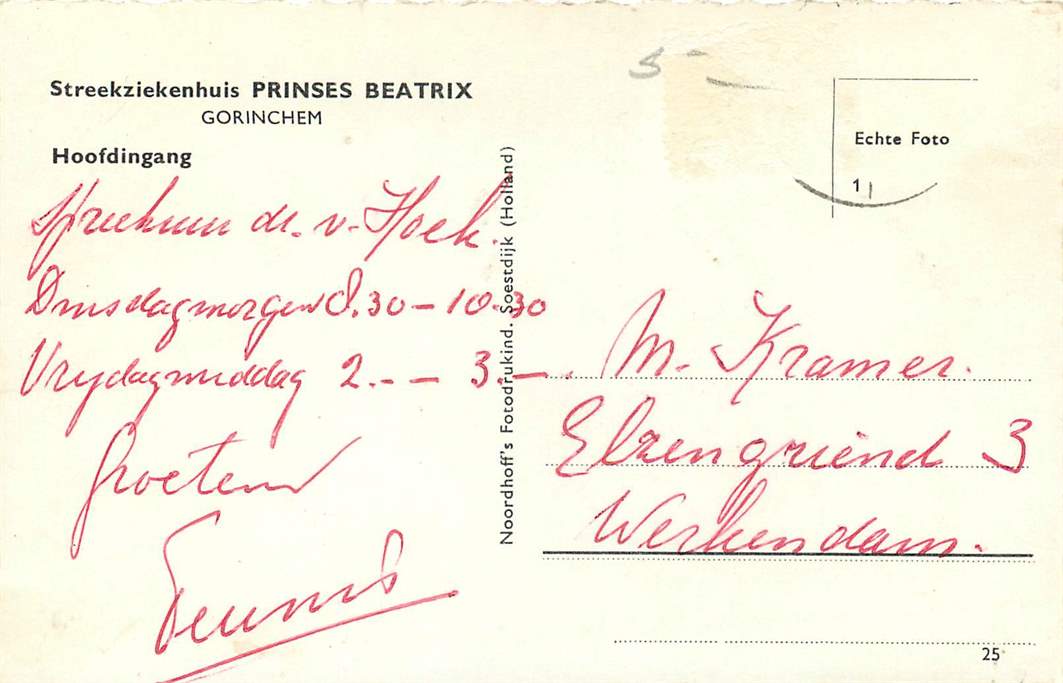 Streekziekenhuis PRINSES BEATRIX
GORINCHEM
Hoofdingang
Spreekuur dr. v. Hoek.
Dinsdagmorgen 8.30 – 10.30
Vrijdagmiddag 2.– – 3.–.
Groeten
Teunis
Noordhoff's Fotodrukind. Soestdijk (Holland)
Echte Foto
1
M. Kramer.
Elzengriend 3
Werkendam.
25